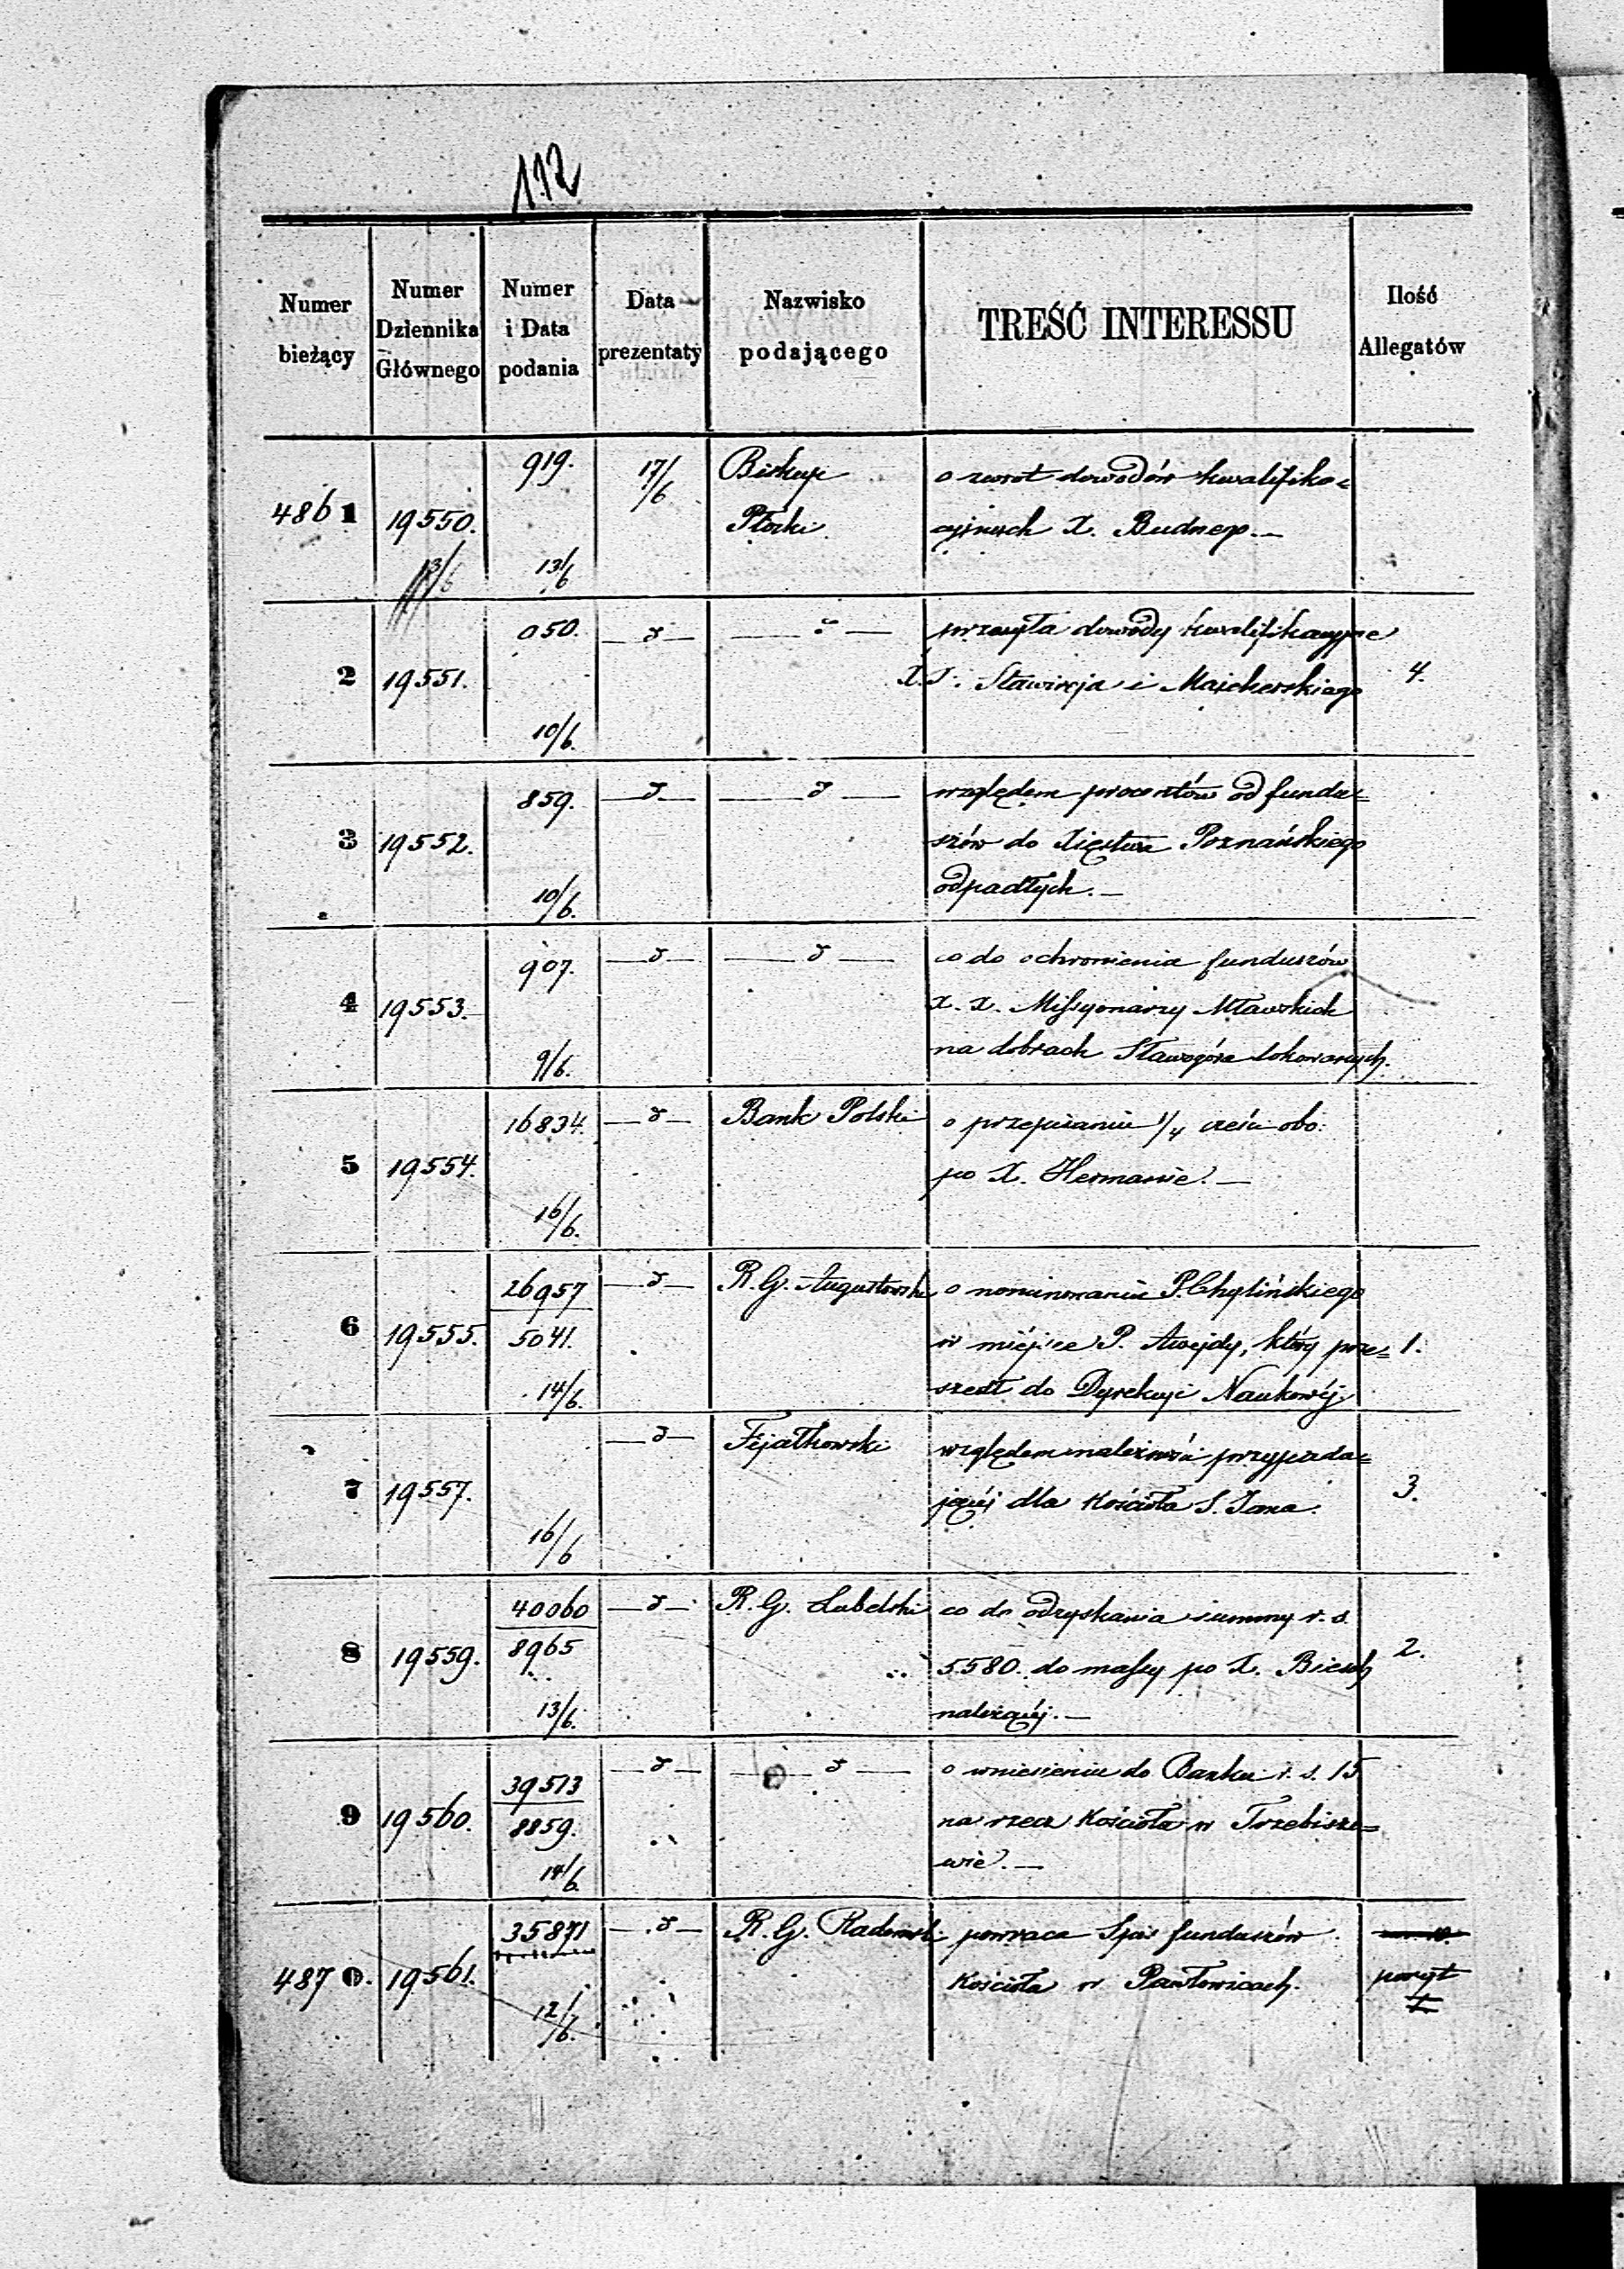 112
Numer bieżący
Numer Dziennika Głównego
Numer i Data podania
Data prezentaty
Nazwisko podającego
TREŚĆ INTERESSU
Ilość Allegatów
4861 19550. 13/6 919. 13/6 17/6 Biskup Płocki
o zwrot dowodów kwalifika=
cyjnych X. Budnego.—
2 19551. 050. 10/6. —d— —d—
przesyła dowody kwalifikacyjne
X.X. i Majcherskiego 4.
3 19552. 859. 10/6. —d— —d—
względem procentów od fundu=
szów do Xięstwa Poznańskiego
odpadłych.—
4 19553. 907. 9/6. —d— —d—
co do ochronienia funduszów
X. X. Missyonarzy Mławskich
na dobrach Sławogóra lokowanych.
5 19554. 16834. 16/6. —d— Bank Polski
o przepisanie 1/4 cześci obo:
po X. Hermanie.—
6 19555. 26957 5041. 14/6. —d— R. G. Augustowski
o nominowanie P. Chylińskiego
w miéjsce P. Awejdy, który prze= 1.
szedł do Dyrekcyi Naukowéj
7 19557. 16/6 —d— Fijałkowski
względem należności przypada=
jącéj dla Kościoła S. Jana. 3.
8 19559. 40060 8965 13/6. —d— R. G. Lubelski
co do odzyskania summy r. s.
5580. do massy po X. 2.
należącéj.—
9 19560. 39513 8859. 14/6. —d— —d—
o wniesienie do Banku r. s. 15
na rzecz Kościoła w Trzebisze=
wie.—
4870. 19561. 35871 12/6. —d— R. G. Radomski
powraca Spis funduszów
Kościoła w Pawłowicach.